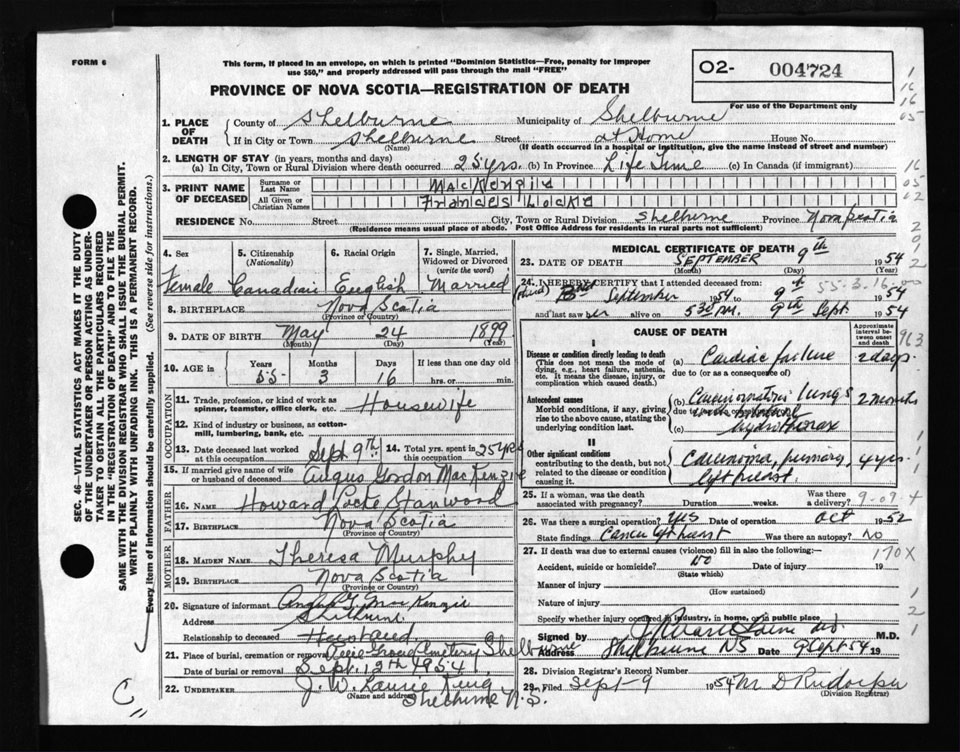 FORM 6
This form, if placed in an envelope, on which is printed "Dominion Statistics—Free, penalty for improper
use $50," and properly addressed will pass through the mail "FREE"
02- 004724
For use of the Department only
PROVINCE OF NOVA SCOTIA—REGISTRATION OF DEATH
1. PLACE OF DEATH
County of Shelburne Municipality of Shelburne
If in City or Town Shelburne Street at Home House No.
(Name) (If death occurred in a hospital or institution, give the name instead of street and number)
2. LENGTH OF STAY (in years, months and days)
(a) In City, Town or Rural Division where death occurred 25 yrs. (b) In Province Life Time (c) In Canada (if immigrant)
3. PRINT NAME OF DECEASED
Surname or Last Name MacKenzie
All Given or Christian Names Frances Locke
RESIDENCE No. Street City, Town or Rural Division Shelburne Province Nova Scotia
(Residence means usual place of abode. Post Office Address for residents in rural parts not sufficient)
4. Sex
Female
5. Citizenship (Nationality)
Canadian
6. Racial Origin
English
7. Single, Married, Widowed or Divorced (write the word)
Married
8. BIRTHPLACE Nova Scotia
(Province or Country)
9. DATE OF BIRTH May 24 1899
(Month) (Day) (Year)
10. AGE in Years 55 Months 3 Days 16 If less than one day old
hrs. or min.
OCCUPATION
11. Trade, profession, or kind of work as
spinner, teamster, office clerk, etc. Housewife
12. Kind of industry or business, as cotton-
mill, lumbering, bank, etc.
13. Date deceased last worked at this occupation Sept 9th
14. Total yrs. spent in this occupation 25 yrs
15. If married give name of wife
or husband of deceased Angus Gordon MacKenzie
FATHER
16. NAME Howard Locke Stanwood
17. BIRTHPLACE Nova Scotia
(Province or Country)
MOTHER
18. MAIDEN NAME Theresa Murphy
19. BIRTHPLACE Nova Scotia
(Province or Country)
20. Signature of informant Angus G. MacKenzie
Address Shelburne
Relationship to deceased Husband
21. Place of burial, cremation or removal Cemetery Shelburne
Date of burial or removal Sept. 12th 1954
22. UNDERTAKER J. W. Laurie King
(Name and address) Shelburne N.S.
MEDICAL CERTIFICATE OF DEATH
23. DATE OF DEATH SEPTEMBER 9th 1954
(Month) (Day) (Year)
24. I HEREBY CERTIFY that I attended deceased from:
September 1954 to 9th 1954
and last saw her alive on 530 P.M. 9th Sept 1954
55-3-16-00
CAUSE OF DEATH
Approximate interval between onset and death
I
Disease or condition directly leading to death
(This does not mean the mode of
dying, e.g., heart failure, asthenia,
etc. It means the disease, injury, or
complication which caused death.)
(a) Cardiac failure 2 days
due to (or as a consequence of)
Antecedent causes
Morbid conditions, if any, giving
rise to the above cause, stating the
underlying condition last.
(b) Carcinomatosis lungs 2 months
due to
(c) hydrothorax
II
Other significant conditions
contributing to the death, but not
related to the disease or condition
causing it.
Carcinoma, primary, 4 yrs.
left breast.
25. If a woman, was the death
associated with pregnancy? Duration weeks. Was there a delivery? 9-09-4
26. Was there a surgical operation? Yes Date of operation Oct 1952
State findings Cancer left breast Was there an autopsy? No
27. If death was due to external causes (violence) fill in also the following:—
170X
Accident, suicide or homicide? No Date of injury 19
(State which)
Manner of injury
(How sustained)
Nature of injury
Specify whether injury occurred in industry, in home, or in public place
Signed by M.D.
Address Shelburne NS Date 9 Sept 54 19
28. Division Registrar's Record Number
29. Filed Sept 9 1954 M D Rudolph
(Division Registrar)
SEC. 46—VITAL STATISTICS ACT MAKES IT THE DUTY
OF THE UNDERTAKER OR PERSON ACTING AS UNDER-
TAKER TO OBTAIN ALL THE PARTICULARS REQUIRED
IN THE "REGISTRATION OF DEATH" AND TO FILE THE
SAME WITH THE DIVISION REGISTRAR WHO SHALL ISSUE THE BURIAL PERMIT.
WRITE PLAINLY WITH UNFADING INK. THIS IS A PERMANENT RECORD.
Every item of information should be carefully supplied. (See reverse side for instructions.)